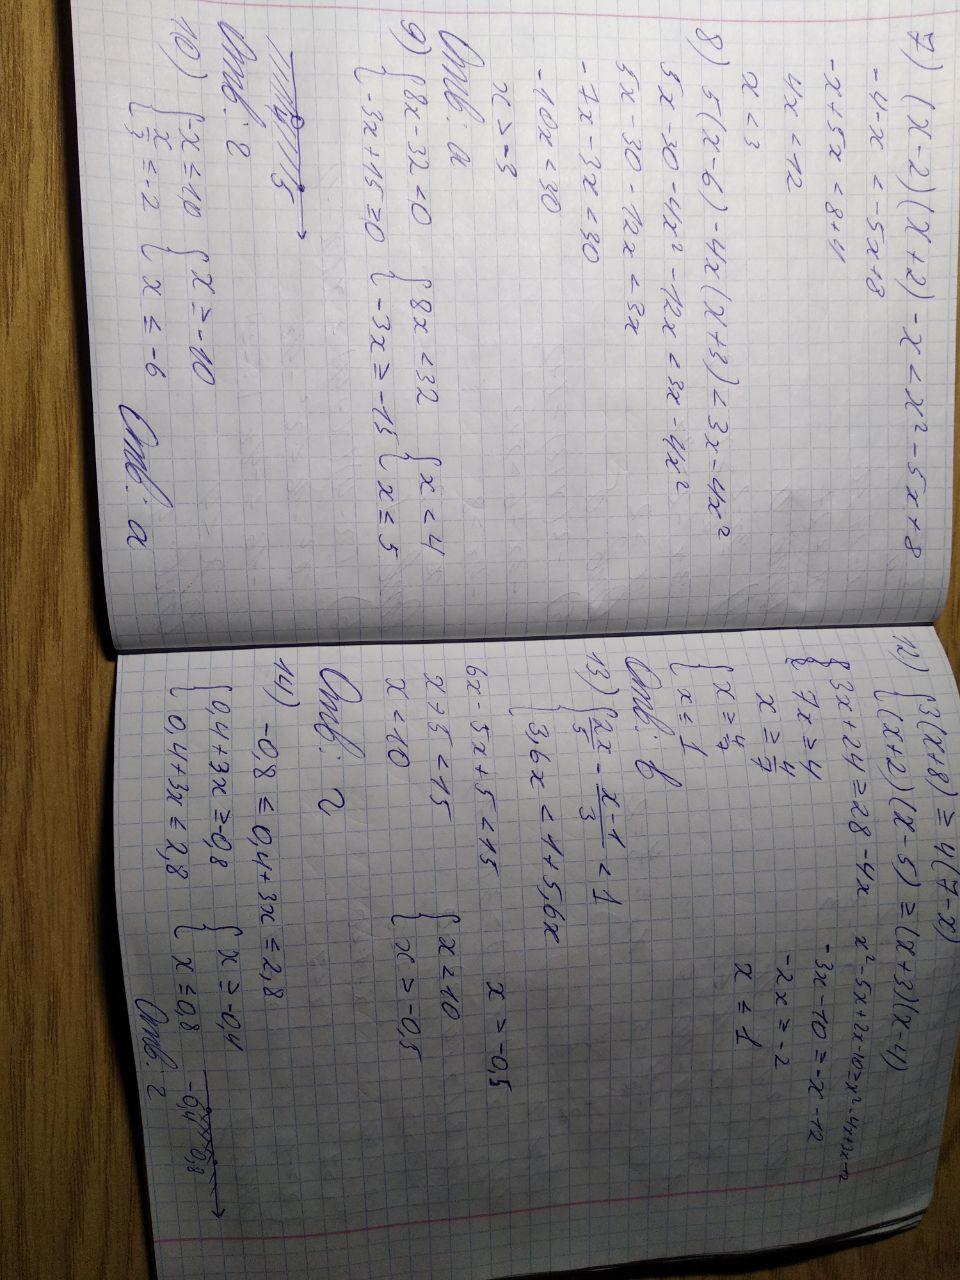 7) (x-2)(x+2)-x<x²-5x+8
-4-x<-5x+8
-x+5x<8+4
4x<12
x<3
8) 5(x-6)-4x(x+3)<3x-4x²
5x-30-4x²-12x<3x-4x²
5x-30-12x<3x
-7x-3x<30
-10x<30
x>-3
Отв: а
9) { 8x-32<0 { 8x<32 { x<4
{ -3x+15≥0 { -3x≥-15 { x≤5
Отв: г
10) { -x≤10 { x≥-10
{ x/3≤-2 { x≤-6
Отв: а
12) { 3(x+8)≥4(7-x)
{ (x+2)(x-5)≥(x+3)(x-4)
3x+24≥28-4x x²-5x+2x-10≥x²-4x+3x-12
7x≥4 -3x-10≥-x-12
x≥4/7 -2x≥-2
{ x≥4/7 x≤1
{ x≤1
Отв: в
13) { 2x/5-(x-1)/3<1
{ 3,6x<1+5,6x
6x-5x+5<15 x>-0,5
x+5<15 { x<10
x<10 { x>-0,5
Отв: г
14) -0,8≤0,4+3x≤2,8
{ 0,4+3x≥-0,8 { x≥-0,4
{ 0,4+3x≤2,8 { x≤0,8 -0,4 0,8
Отв. г